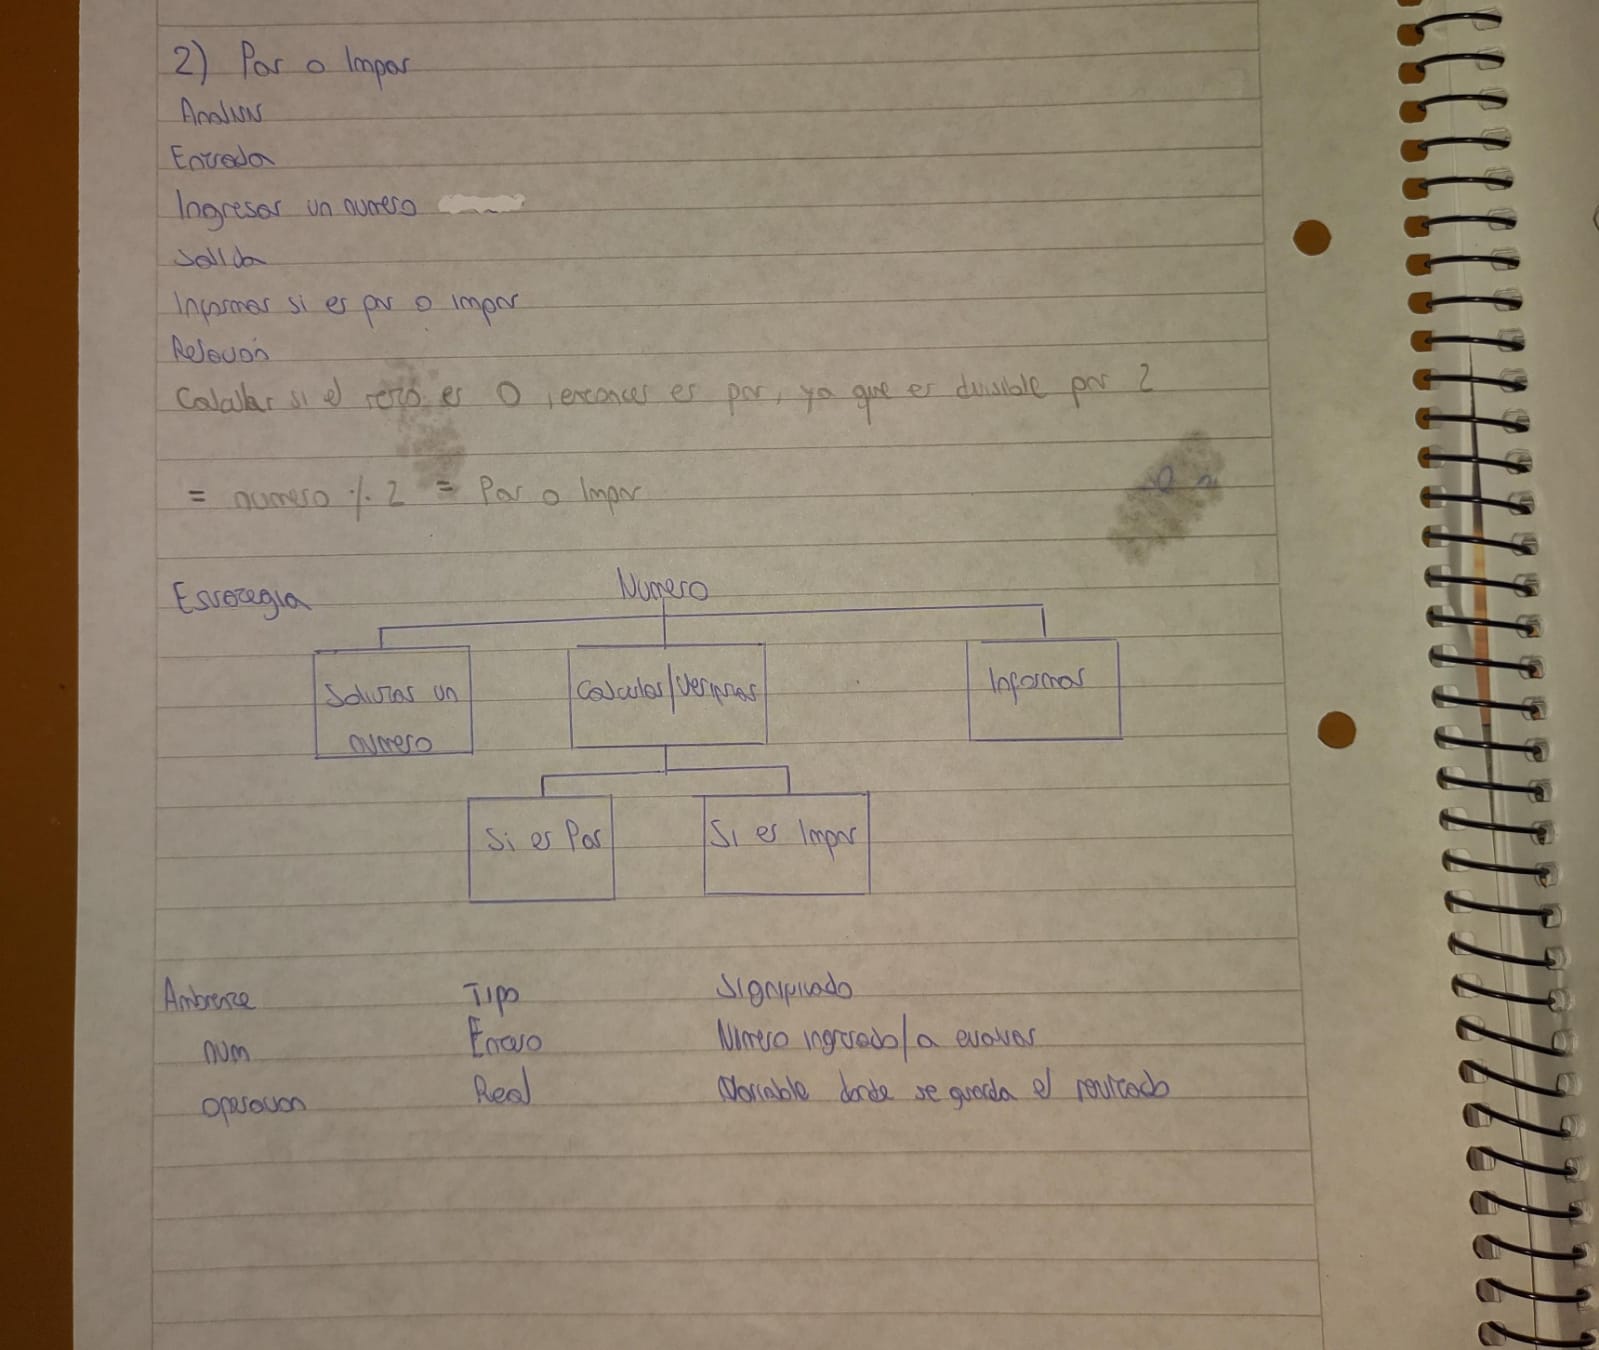 2) Par o Impar
Analisis
Entrada
Ingresar un numero
Salida
Informar si es par o impar
Relación
Calcular si el resto es 0, entonces es par, ya que es divisible por 2
= numero % 2 = Par o Impar
Estrategia
Numero
Solicitar un
numero
Calcular/Verificar
Informar
Si es Par
Si es Impar
Ambiente Tipo Significado
num Entero Número ingresado/a evaluar
operacion Real Variable donde se guarda el resultado